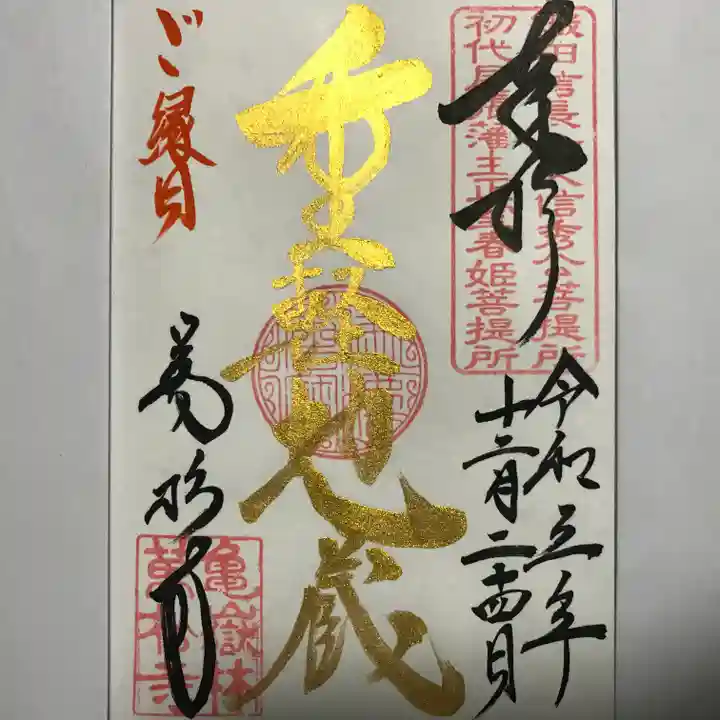 奉拝
織田信長公父信秀公菩提所
初代尾張藩主正室春姫菩提所
令和五年
十二月二十四日
重軽地蔵
ご縁日
萬松寺
亀嶽林
萬松寺